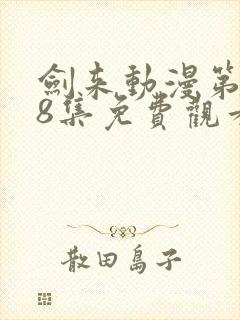 劍來動漫第
8集免費觀看
散田島子